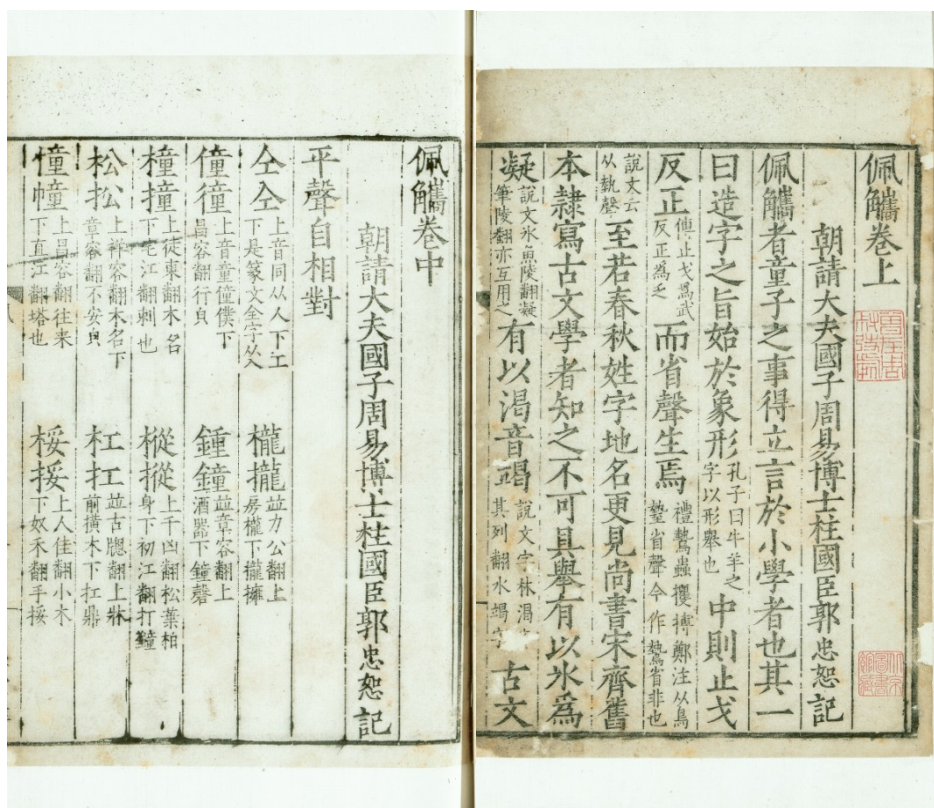 佩觽卷上
朝請大夫國子周易博士柱國臣郭忠恕記
佩觽者童子之事得立言於小學者也其一
曰造字之旨始於象形孔子曰牛羊之字以形舉也中則止戈
反正傳止戈爲武反正爲乏而省聲生焉禮鷙蟲攫搏鄭注从鳥蟄省聲今作鷙省非也
說文云从執聲至若春秋姓字地名更見尚書宋齊舊
本隷寫古文學者知之不可具舉有以氷爲
凝說文氷魚陵翻凝筆陵翻亦互用之有以渴音竭說文字林渴其列翻水竭字古文
佩觽卷中
朝請大夫國子周易博士柱國臣郭忠恕記
平聲自相對
仝㒰上音同从人下工下是篆文全字从入 櫳攏並力公翻上房櫳下攏擁
僮徸上音童僮僕下昌容翻行皃 鍾鐘並章容翻上酒器下鐘磬
橦撞上徒東翻木名下宅江翻刺也 樅摐上千凶翻松葉柏身下初江翻打鐘
松扖上祥容翻木名下章容翻不安皃 杠扛並古牎翻上牀前橫木下扛鼎
憧幢上昌容翻往來下直江翻塔也 桵挼上人佳翻小木下奴禾翻手挼